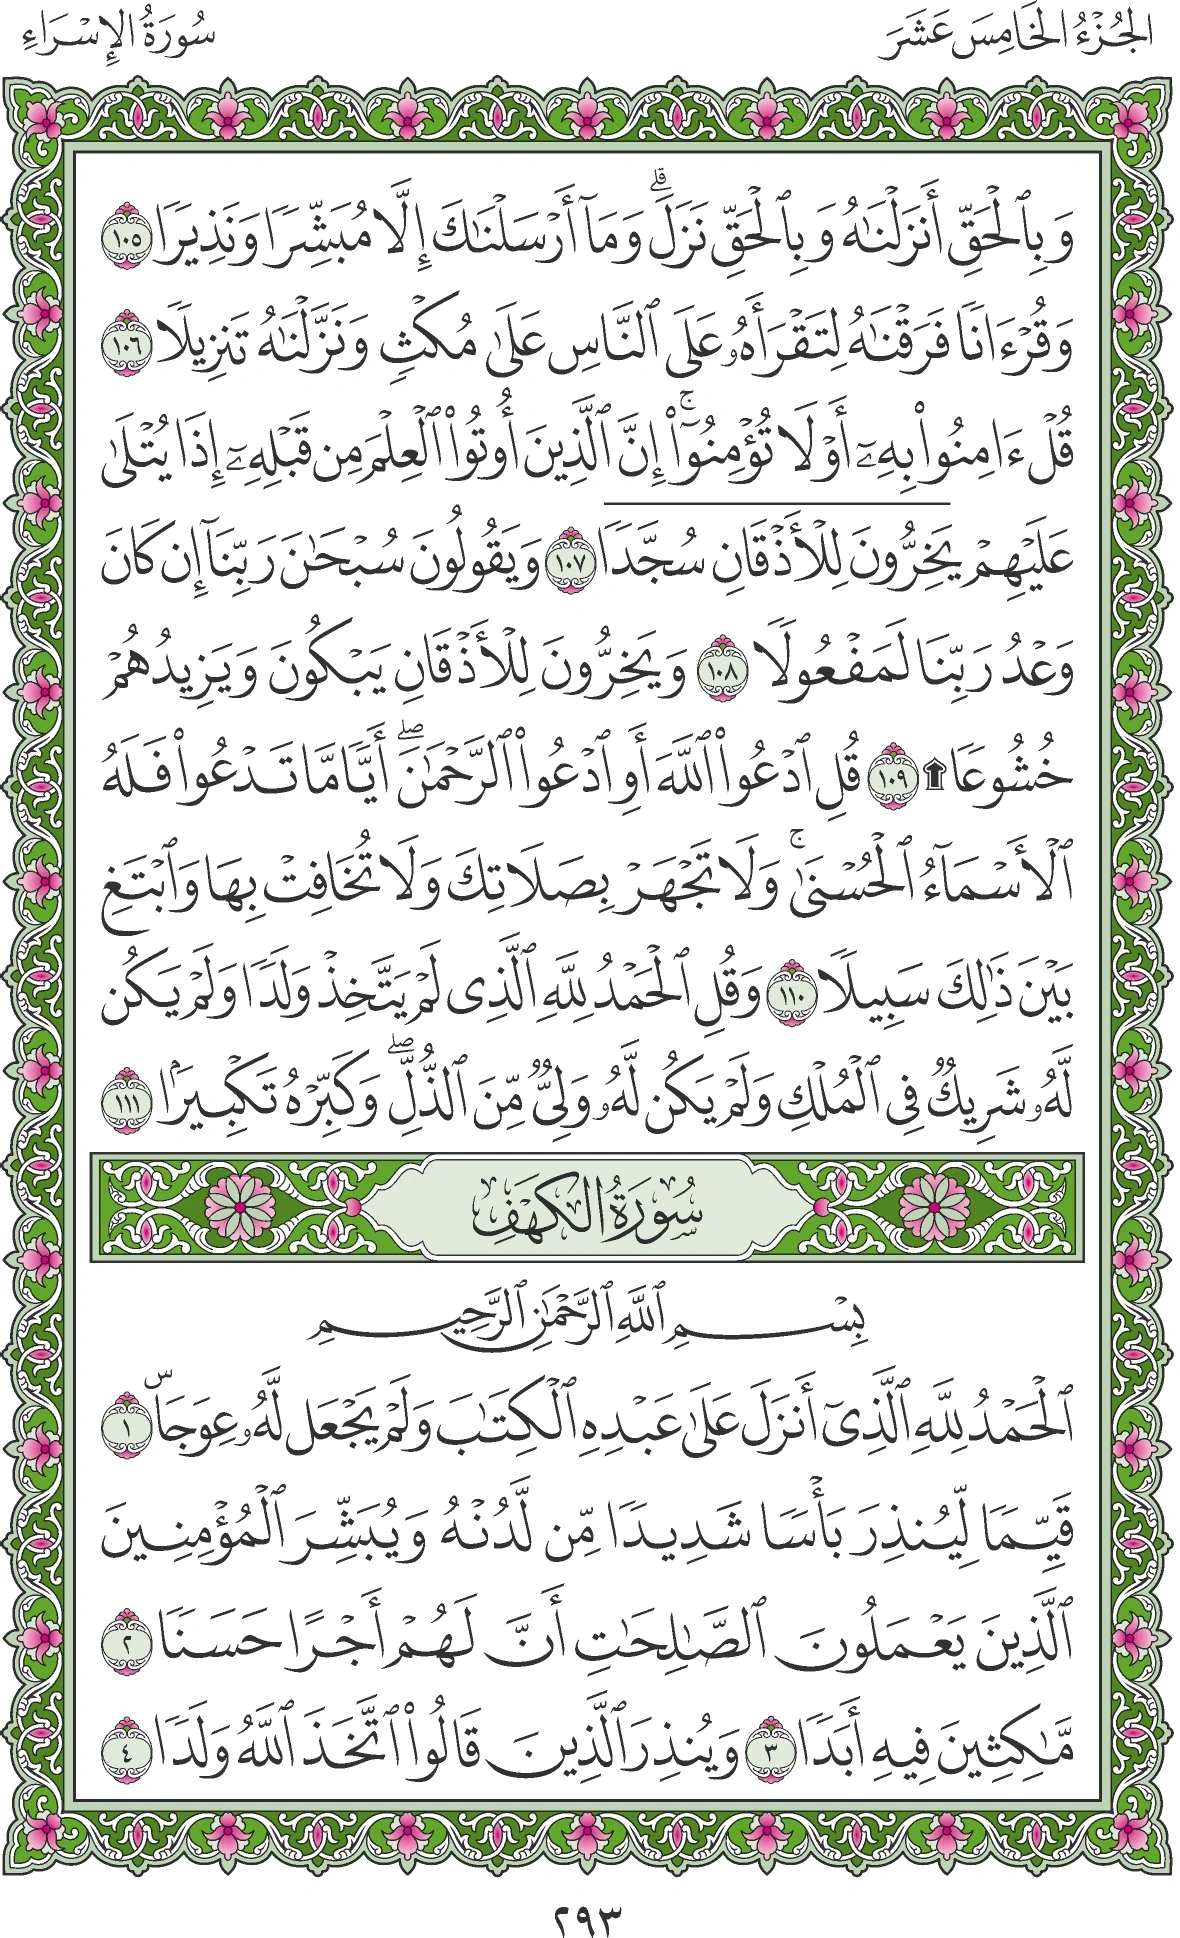 الجُزْءُ الخَامِسَ عَشَرَ
سُورَةُ الإِسْرَاءِ
وَبِٱلْحَقِّ أَنزَلْنَٰهُ وَبِٱلْحَقِّ نَزَلَۗ وَمَآ أَرْسَلْنَٰكَ إِلَّا مُبَشِّرًا وَنَذِيرًا ١٠٥
وَقُرْءَانًا فَرَقْنَٰهُ لِتَقْرَأَهُۥ عَلَى ٱلنَّاسِ عَلَىٰ مُكْثٍ وَنَزَّلْنَٰهُ تَنزِيلًا ١٠٦
قُلْ ءَامِنُوا۟ بِهِۦٓ أَوْ لَا تُؤْمِنُوٓا۟ۚ إِنَّ ٱلَّذِينَ أُوتُوا۟ ٱلْعِلْمَ مِن قَبْلِهِۦٓ إِذَا يُتْلَىٰ
عَلَيْهِمْ يَخِرُّونَ لِلْأَذْقَانِ سُجَّدًا ١٠٧ وَيَقُولُونَ سُبْحَٰنَ رَبِّنَآ إِن كَانَ
وَعْدُ رَبِّنَا لَمَفْعُولًا ١٠٨ وَيَخِرُّونَ لِلْأَذْقَانِ يَبْكُونَ وَيَزِيدُهُمْ
خُشُوعًا ۩ ١٠٩ قُلِ ٱدْعُوا۟ ٱللَّهَ أَوِ ٱدْعُوا۟ ٱلرَّحْمَٰنَۖ أَيًّا مَّا تَدْعُوا۟ فَلَهُ
ٱلْأَسْمَآءُ ٱلْحُسْنَىٰۚ وَلَا تَجْهَرْ بِصَلَاتِكَ وَلَا تُخَافِتْ بِهَا وَٱبْتَغِ
بَيْنَ ذَٰلِكَ سَبِيلًا ١١٠ وَقُلِ ٱلْحَمْدُ لِلَّهِ ٱلَّذِى لَمْ يَتَّخِذْ وَلَدًا وَلَمْ يَكُن
لَّهُۥ شَرِيكٌ فِى ٱلْمُلْكِ وَلَمْ يَكُن لَّهُۥ وَلِىٌّ مِّنَ ٱلذُّلِّۖ وَكَبِّرْهُ تَكْبِيرًۢا ١١١
سُورَةُ الكَهْفِ
بِسْمِ ٱللَّهِ ٱلرَّحْمَٰنِ ٱلرَّحِيمِ
ٱلْحَمْدُ لِلَّهِ ٱلَّذِىٓ أَنزَلَ عَلَىٰ عَبْدِهِ ٱلْكِتَٰبَ وَلَمْ يَجْعَل لَّهُۥ عِوَجَاۜ ١
قَيِّمًا لِّيُنذِرَ بَأْسًا شَدِيدًا مِّن لَّدُنْهُ وَيُبَشِّرَ ٱلْمُؤْمِنِينَ
ٱلَّذِينَ يَعْمَلُونَ ٱلصَّٰلِحَٰتِ أَنَّ لَهُمْ أَجْرًا حَسَنًا ٢
مَّٰكِثِينَ فِيهِ أَبَدًا ٣ وَيُنذِرَ ٱلَّذِينَ قَالُوا۟ ٱتَّخَذَ ٱللَّهُ وَلَدًا ٤
٢٩٣